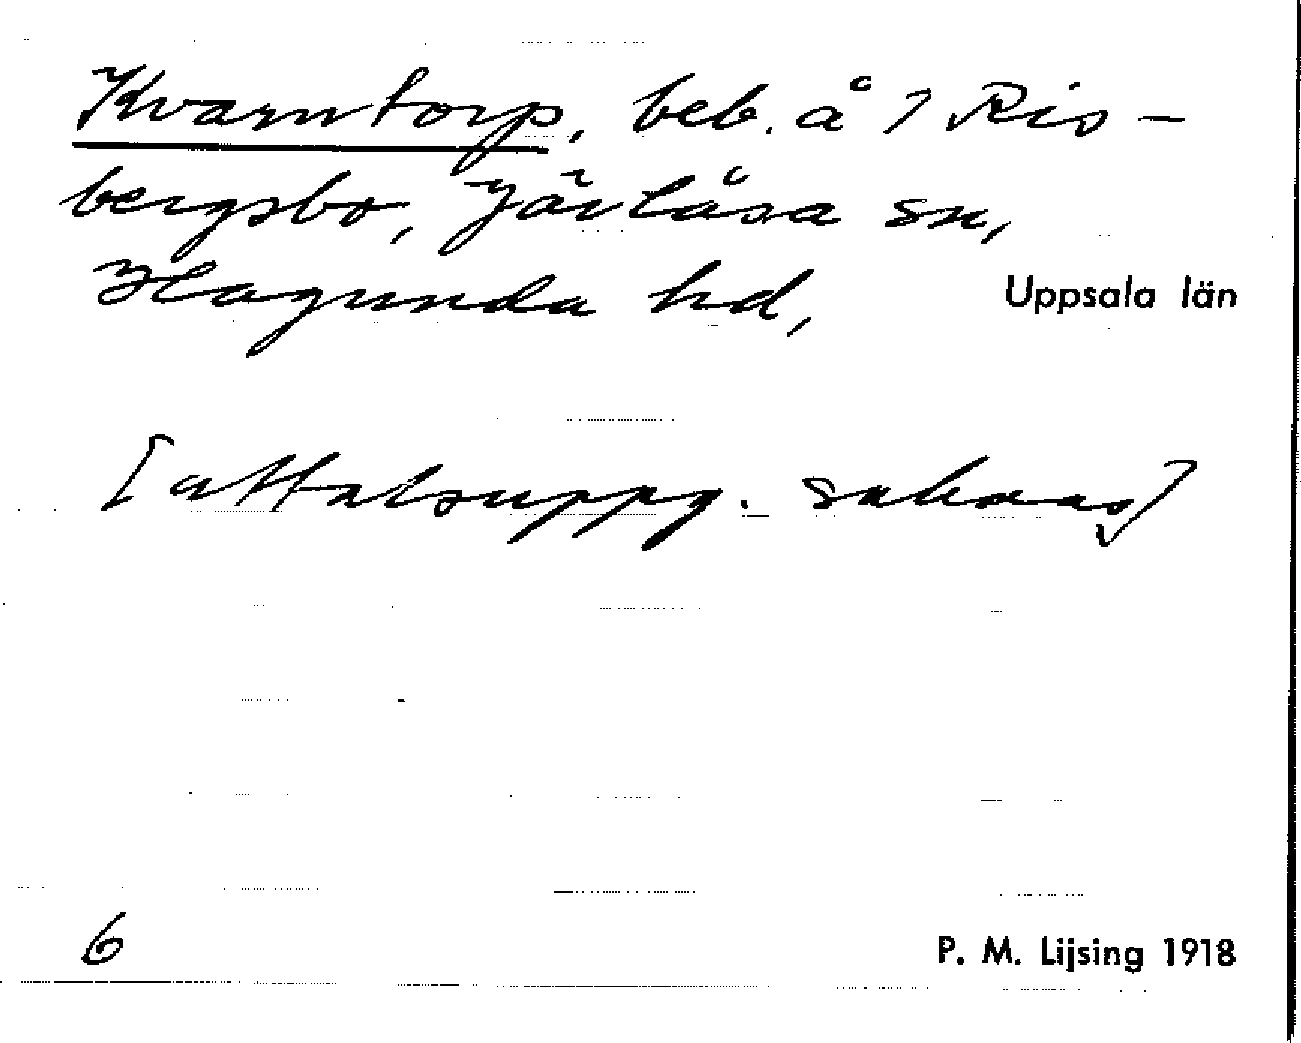 Kvarntorp, beb. å 1 Ris-
bergsbo, Järlåsa sn,
Hagunda hd, Uppsala län
[uttalsuppg. saknas]
6
P. M. Lijsing 1918